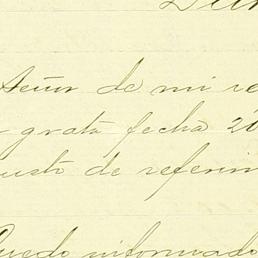 Señor de mi re
grata fecha 20
usto de referir
Quedo informado